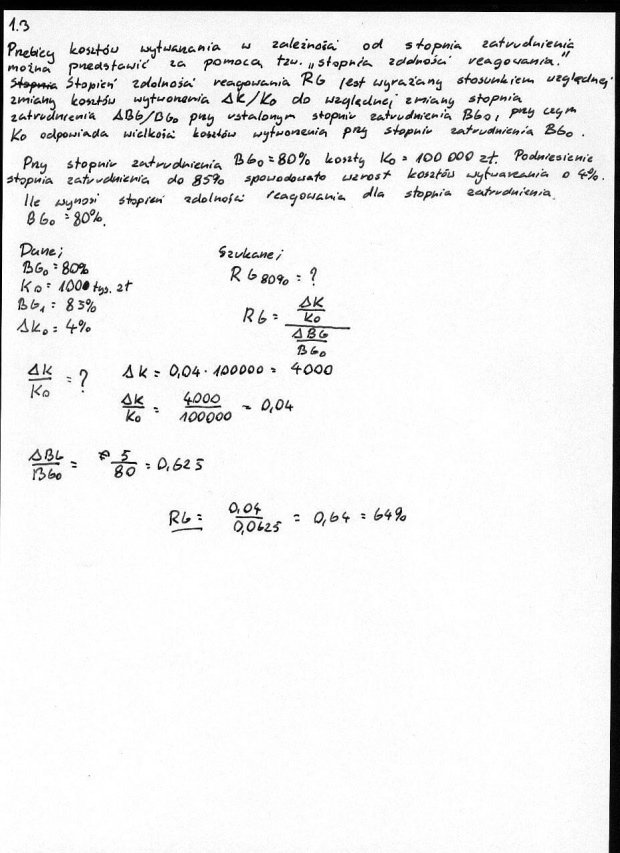 1.3
Przebieg kosztów wytwarzania w zależności od stopnia zatrudnienia
można przedstawić za pomocą tzw. „stopnia zdolności reagowania."
Stopnia Stopień zdolności reagowania RG jest wyrażany stosunkiem względnej
zmiany kosztów wytworzenia ΔK/K0 do względnej zmiany stopnia
zatrudnienia ΔBG/BG0 przy ustalonym stopniu zatrudnienia BG0, przy czym
K0 odpowiada wielkości kosztów wytworzenia przy stopniu zatrudnienia BG0.
Przy stopniu zatrudnienia BG0 = 80% koszty K0 = 100 000 zł. Podniesienie
stopnia zatrudnienia do 85% spowodowało wzrost kosztów wytwarzania o 4%.
Ile wynosi stopień zdolności reagowania dla stopnia zatrudnienia
BG0 = 80%.
Dane;
BG0 = 80%
K0 = 1000 tys. zł
BG1 = 85%
ΔK0 = 4%
Szukane;
RG80% = ?
RG = ΔK/K0 / ΔBG/BG0
ΔK/K0 = ? ΔK = 0,04 · 100000 = 4000
ΔK/K0 = 4000/100000 = 0,04
ΔBG/BG0 = 5/80 = 0,625
RG = 0,04/0,0625 = 0,64 = 64%